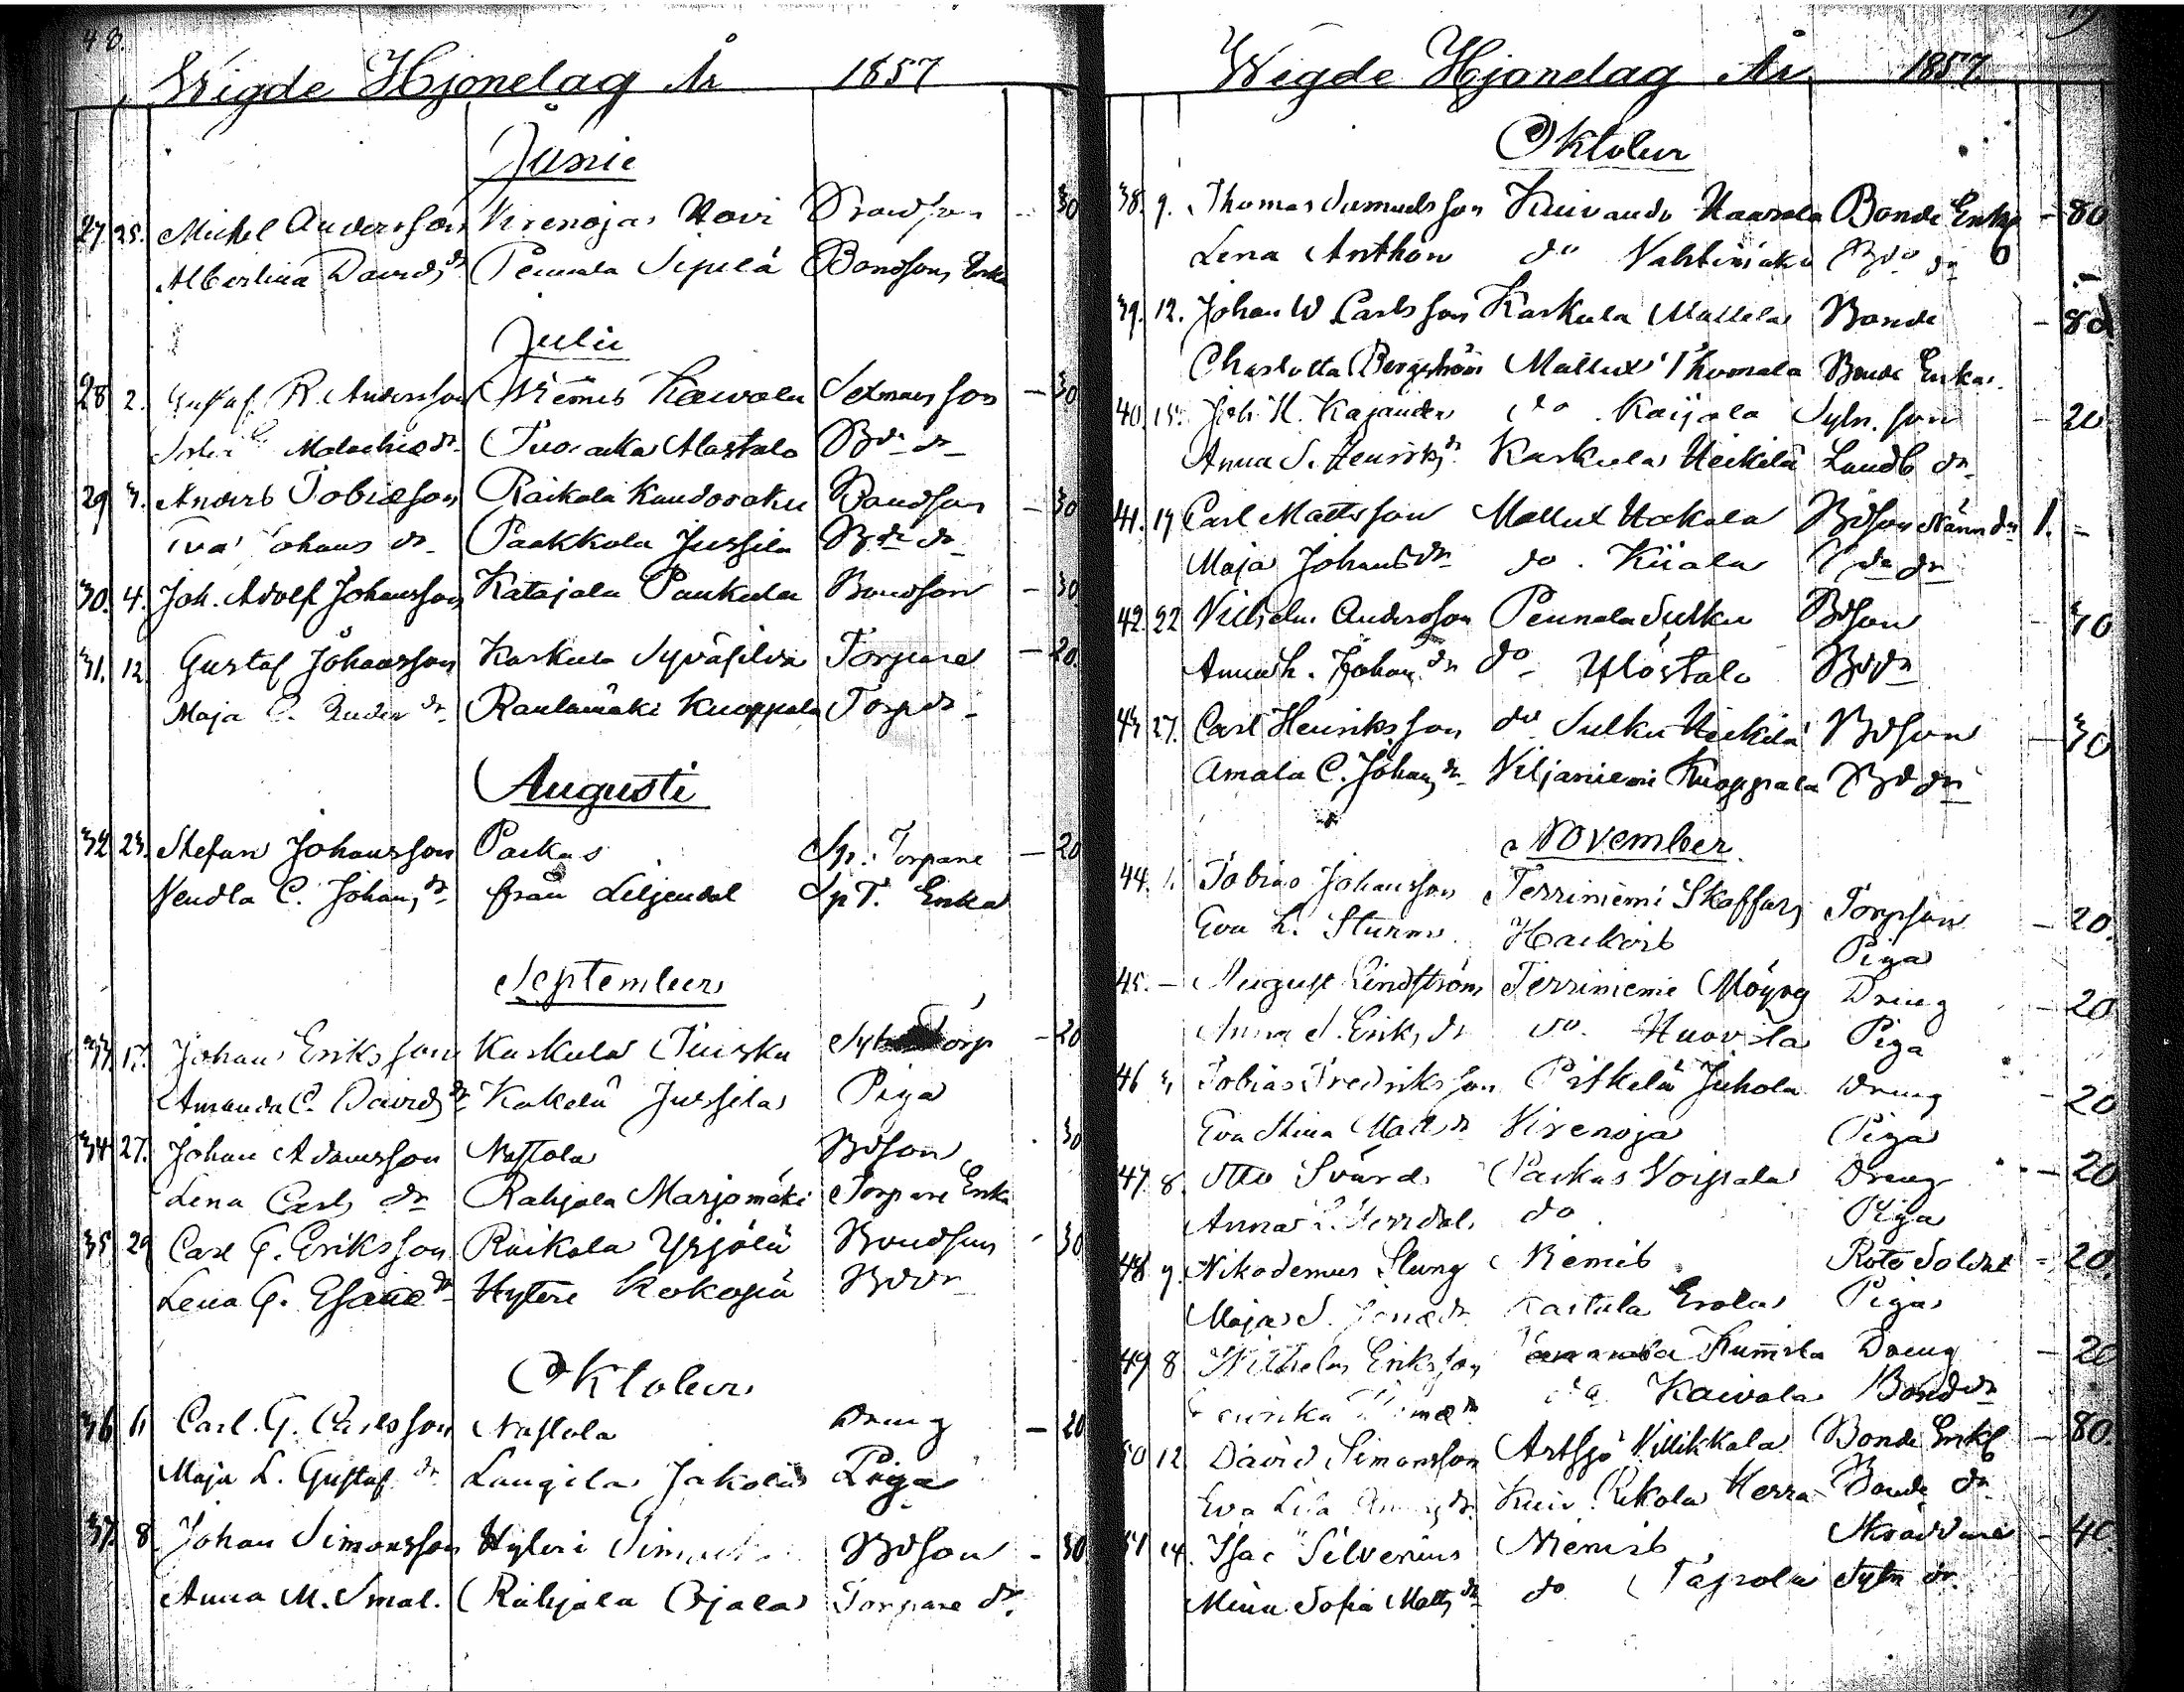 48.
Wigde Hjonelag År 1857
Junii
27 25. Michel Andersson Virenoja Hovi Bondson - 30
Albertina Davids dr Pennala Sipilä Bondsons Enka
Julii
28 2. Gustaf R. Andersson Niemis Kaivola Sexmansson - 30
Malachiæ dr Alastalo Bde dr
29 3. Anders Tobiæson Raikala Bondson - 30
Eva Johans dr Paakkola Jussila Bde dr
30. 4. Joh. Adolf Johansson Katajala Paukula Bondson - 30
31. 12 Gustaf Johansson Koskula Syväsilda Torpare - 20
Maja C. dr Rautamäki Kuoppala Torp dr
Augusti
32 23. Stefan Johansson Paikas Sp. Torpare - 20
Vendla C. Johans dr från Liljendal Sp T. Enka
September
33. 17. Johan Eriksson Koskula Tuiska Torp - 20
Amanda C. Davids dr Kokela Jussila Piga
34 27. Johan Adamsson Nastola Bdson - 30
Lena Carls dr Rahjala Marjomäki Torpare Enka
35 29 Carl G. Eriksson Raikala Yrjölä Bondson - 30
Lena G. Esaiæ dr Hyteri Kokosiä Bd dr
Oktober
36 6 Carl. G. Carlsson Nastola Dreng - 20
Maja L. Gustaf dr Laugila Jakola Piga
37. 8 Johan Simonsson Hyteri Bdson - 30
Anna M. Smal. Rahjala Ojala Torpare dr.
Wigde Hjonelag År 1857.
Oktober
38. 9. Thomas Samuelsson Kuivando Haarala Bonde Enkl - 80
Lena Anthon do Vahtimäki Bde dr
39. 12. Johan W Carlsson Karkula Mattila Bonde - 80
Charlotta Bergström Mallux Thomala Bonde Enka.
40. 15. Joh. H. Kajander do. Kaijala Sytn. son - 20
Anna S. Henriks dr Karkula Heikilä Landb dr
41. 19 Carl Mattsson Mallux Hokala Bdson Nämn dn 1. -
Maja Johans dr do. Kiiala dr
42. 22 Vilhelm Andersson Pennala Sulku Bdson - 30
Anna h. Johans dr do Ylöstalo Bd dr
43 27. Carl Henriksson do Sulku Heikilä Bdson - 30
Amala C. Johans dr Viljaniemi Kuoppala Bd dr
November
44. 1. Tobias Johansson Terriniemi Skaffars Torpson - 20.
Eva L. Sturm Haikois Piga
45. - August Lindström Terriniemi Möyry Dreng - 20
Anna S. Eriks dr do. Huovila Piga
46 3 Tobias Fredriksson Pitkälä Juhola Dreng - 20
Eva Stina Matts dr Virenoja Piga
47. 8. Otto Svärd Paikas Voipala Dreng - 20
Anna do. Piga
48 9 Nikodemus Slung Niemis Rote Soldat - 20.
Maja S. dr Kaitula Erola Piga
49 8 Wilhelm Eriksson Kummila Dreng - 20
do Kaivola Bond dr
50 12 David Simonsson Artsjö Villikkala Bonde Enkl - 80.
Eva Kuiv. Rikola Herra Bonde dr
51 14. Isac Silvenius Niemis Skräddare - 40.
Mina Sofia Matts dr do Tapola Sytn dr.